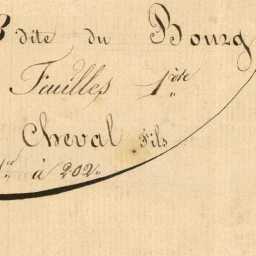 B dite du Bourg
Feuilles 1ère
Cheval Fils
à 202.